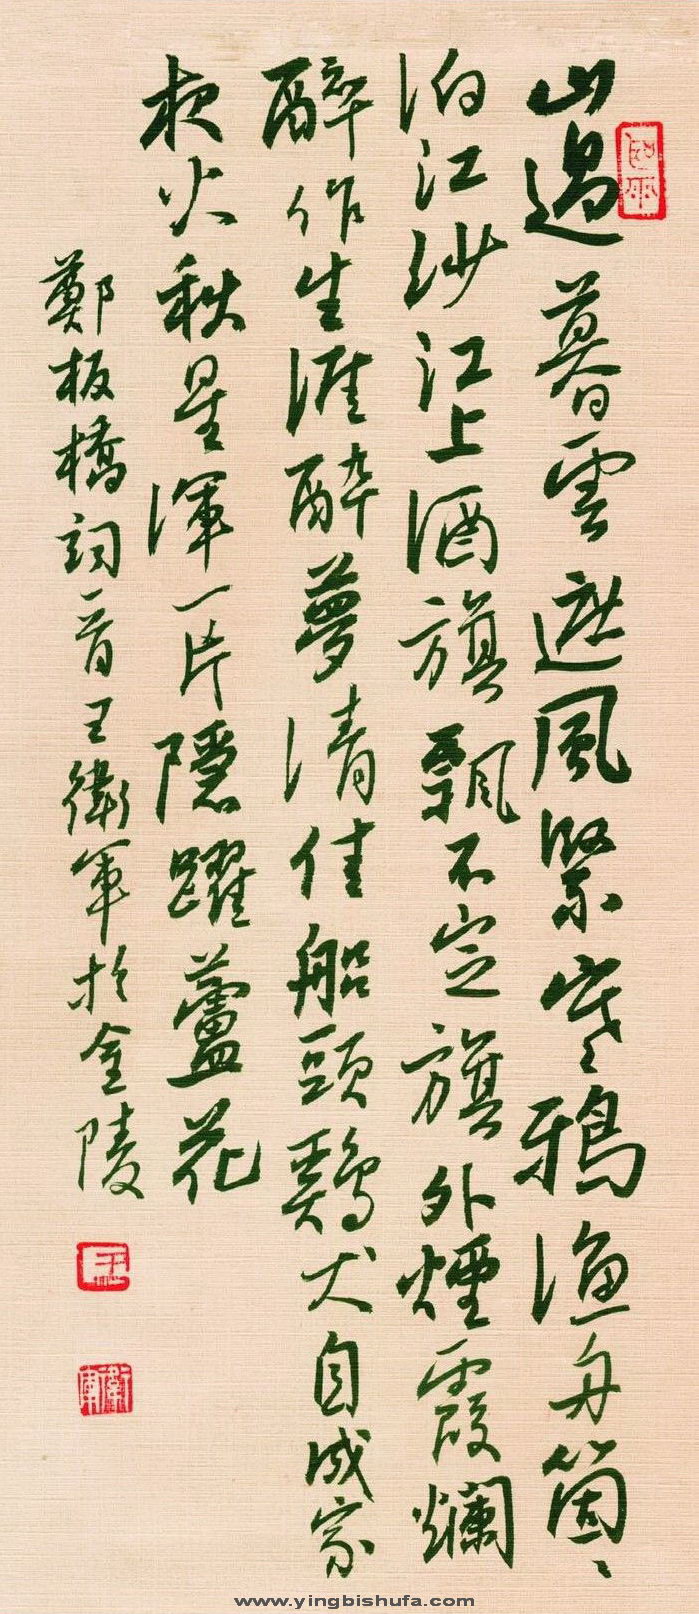 山過暮雲遮風緊寒鴉漁舟箇〻
泊江沙江上酒旗飄不定旗外煙霞爛
醉作生涯醉夢清佳船頭鷄犬自成家
夜火秋星渾一片隱躍蘆花
鄭板橋詞一首王衛軍於金陵
王
衛軍
www.yingbishufa.com